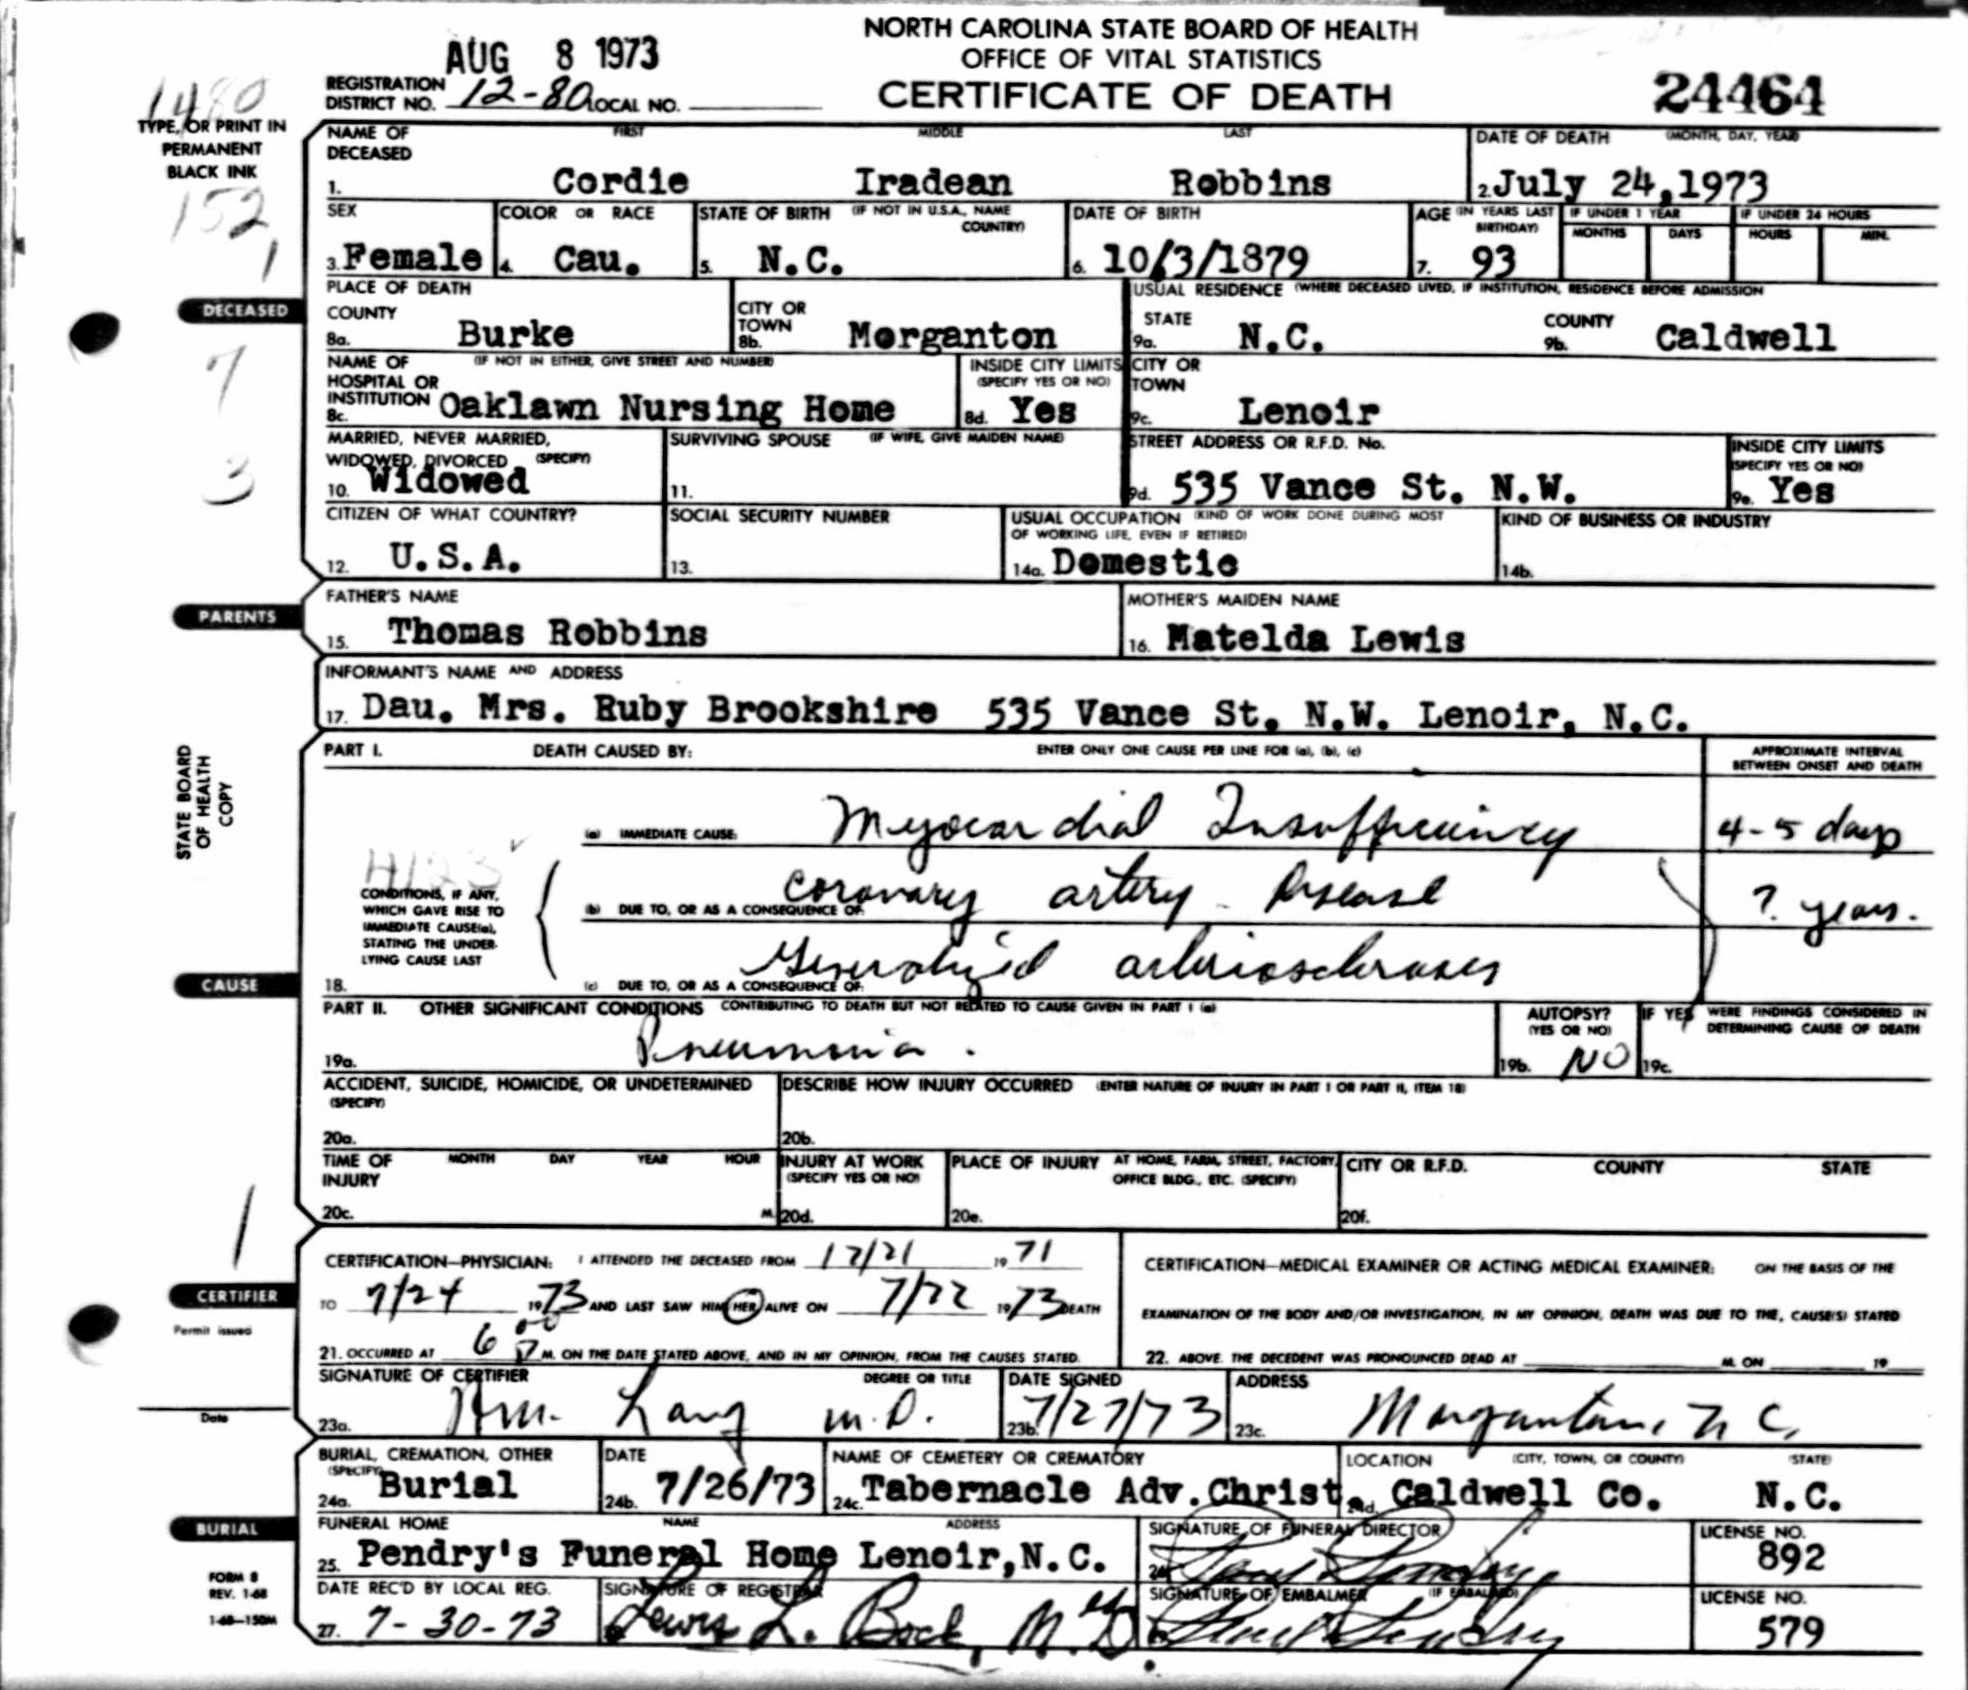 NORTH CAROLINA STATE BOARD OF HEALTH
OFFICE OF VITAL STATISTICS
CERTIFICATE OF DEATH
AUG 8 1973
24464
REGISTRATION DISTRICT NO. 12-80 LOCAL NO.
1480
TYPE, OR PRINT IN
PERMANENT
BLACK INK
152
1
NAME OF DECEASED FIRST MIDDLE LAST
1. Cordie Iradean Robbins
DATE OF DEATH (MONTH, DAY, YEAR)
2. July 24, 1973
SEX
3. Female
COLOR OR RACE
4. Cau.
STATE OF BIRTH (IF NOT IN U.S.A., NAME COUNTRY)
5. N.C.
DATE OF BIRTH
6. 10/3/1879
AGE (IN YEARS LAST BIRTHDAY)
7. 93
IF UNDER 1 YEAR
MONTHS DAYS
IF UNDER 24 HOURS
HOURS MIN.
DECEASED
7
3
PLACE OF DEATH
COUNTY
8a. Burke
CITY OR TOWN
8b. Morganton
USUAL RESIDENCE (WHERE DECEASED LIVED, IF INSTITUTION, RESIDENCE BEFORE ADMISSION
STATE
9a. N.C.
COUNTY
9b. Caldwell
NAME OF HOSPITAL OR INSTITUTION (IF NOT IN EITHER, GIVE STREET AND NUMBER)
8c. Oaklawn Nursing Home
INSIDE CITY LIMITS (SPECIFY YES OR NO)
8d. Yes
CITY OR TOWN
9c. Lenoir
MARRIED, NEVER MARRIED, WIDOWED, DIVORCED (SPECIFY)
10. Widowed
SURVIVING SPOUSE (IF WIFE, GIVE MAIDEN NAME)
11.
STREET ADDRESS OR R.F.D. No.
9d. 535 Vance St. N.W.
INSIDE CITY LIMITS (SPECIFY YES OR NO)
9e. Yes
CITIZEN OF WHAT COUNTRY?
12. U.S.A.
SOCIAL SECURITY NUMBER
13.
USUAL OCCUPATION (KIND OF WORK DONE DURING MOST OF WORKING LIFE, EVEN IF RETIRED)
14a. Domestic
KIND OF BUSINESS OR INDUSTRY
14b.
PARENTS
FATHER'S NAME
15. Thomas Robbins
MOTHER'S MAIDEN NAME
16. Matelda Lewis
INFORMANT'S NAME AND ADDRESS
17. Dau. Mrs. Ruby Brookshire 535 Vance St. N.W. Lenoir, N.C.
STATE BOARD
OF HEALTH
COPY
PART I. DEATH CAUSED BY: ENTER ONLY ONE CAUSE PER LINE FOR (a), (b), (c)
APPROXIMATE INTERVAL BETWEEN ONSET AND DEATH
(a) IMMEDIATE CAUSE: Myocardial Insufficiency 4-5 days
4123
CONDITIONS, IF ANY, WHICH GAVE RISE TO IMMEDIATE CAUSE(a), STATING THE UNDERLYING CAUSE LAST
(b) DUE TO, OR AS A CONSEQUENCE OF: Coronary artery Disease ? years.
CAUSE
18. (c) DUE TO, OR AS A CONSEQUENCE OF: Generalized arteriosclerosis
PART II. OTHER SIGNIFICANT CONDITIONS CONTRIBUTING TO DEATH BUT NOT RELATED TO CAUSE GIVEN IN PART I (a)
19a. Pneumonia.
AUTOPSY? (YES OR NO)
19b. NO
IF YES WERE FINDINGS CONSIDERED IN DETERMINING CAUSE OF DEATH
19c.
ACCIDENT, SUICIDE, HOMICIDE, OR UNDETERMINED (SPECIFY)
20a.
DESCRIBE HOW INJURY OCCURRED (ENTER NATURE OF INJURY IN PART I OR PART II, ITEM 18)
20b.
TIME OF INJURY MONTH DAY YEAR HOUR
20c. M.
INJURY AT WORK (SPECIFY YES OR NO)
20d.
PLACE OF INJURY AT HOME, FARM, STREET, FACTORY, OFFICE BLDG., ETC. (SPECIFY)
20e.
CITY OR R.F.D. COUNTY STATE
20f.
1
CERTIFIER
Permit issued
Date
CERTIFICATION—PHYSICIAN: I ATTENDED THE DECEASED FROM 12/21 19 71
TO 7/24 19 73 AND LAST SAW HIM HER ALIVE ON 7/22 19 73 DEATH
21. OCCURRED AT 6 00 P M. ON THE DATE STATED ABOVE, AND IN MY OPINION, FROM THE CAUSES STATED.
CERTIFICATION—MEDICAL EXAMINER OR ACTING MEDICAL EXAMINER: ON THE BASIS OF THE
EXAMINATION OF THE BODY AND/OR INVESTIGATION, IN MY OPINION, DEATH WAS DUE TO THE, CAUSE(S) STATED
22. ABOVE. THE DECEDENT WAS PRONOUNCED DEAD AT M. ON 19
SIGNATURE OF CERTIFIER DEGREE OR TITLE
23a. Lang M.D.
DATE SIGNED
23b. 7/27/73
ADDRESS
23c. Morganton, N C,
BURIAL, CREMATION, OTHER (SPECIFY)
24a. Burial
DATE
24b. 7/26/73
NAME OF CEMETERY OR CREMATORY
24c. Tabernacle Adv.Christ.
LOCATION (CITY, TOWN, OR COUNTY) (STATE)
24d. Caldwell Co. N.C.
BURIAL
FORM 8
REV. 1-68
1-68—150M
FUNERAL HOME NAME ADDRESS
25. Pendry's Funeral Home Lenoir, N.C.
SIGNATURE OF FUNERAL DIRECTOR
LICENSE NO.
892
DATE REC'D BY LOCAL REG.
27. 7-30-73
SIGNATURE OF REGISTRAR
Lewis L. Bock, M.D.
SIGNATURE OF EMBALMER (IF EMBALMED)
LICENSE NO.
579